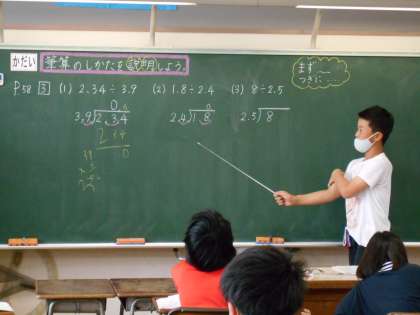 かだい 筆算のしかたを説明しよう。
まず〜
つぎに…
P58 3 (1) 2.34÷3.9 (2) 1.8÷2.4 (3) 8÷2.5
0.6
3.9)2.34
2 34
0
0
2.4)1.8
2.5)8
39